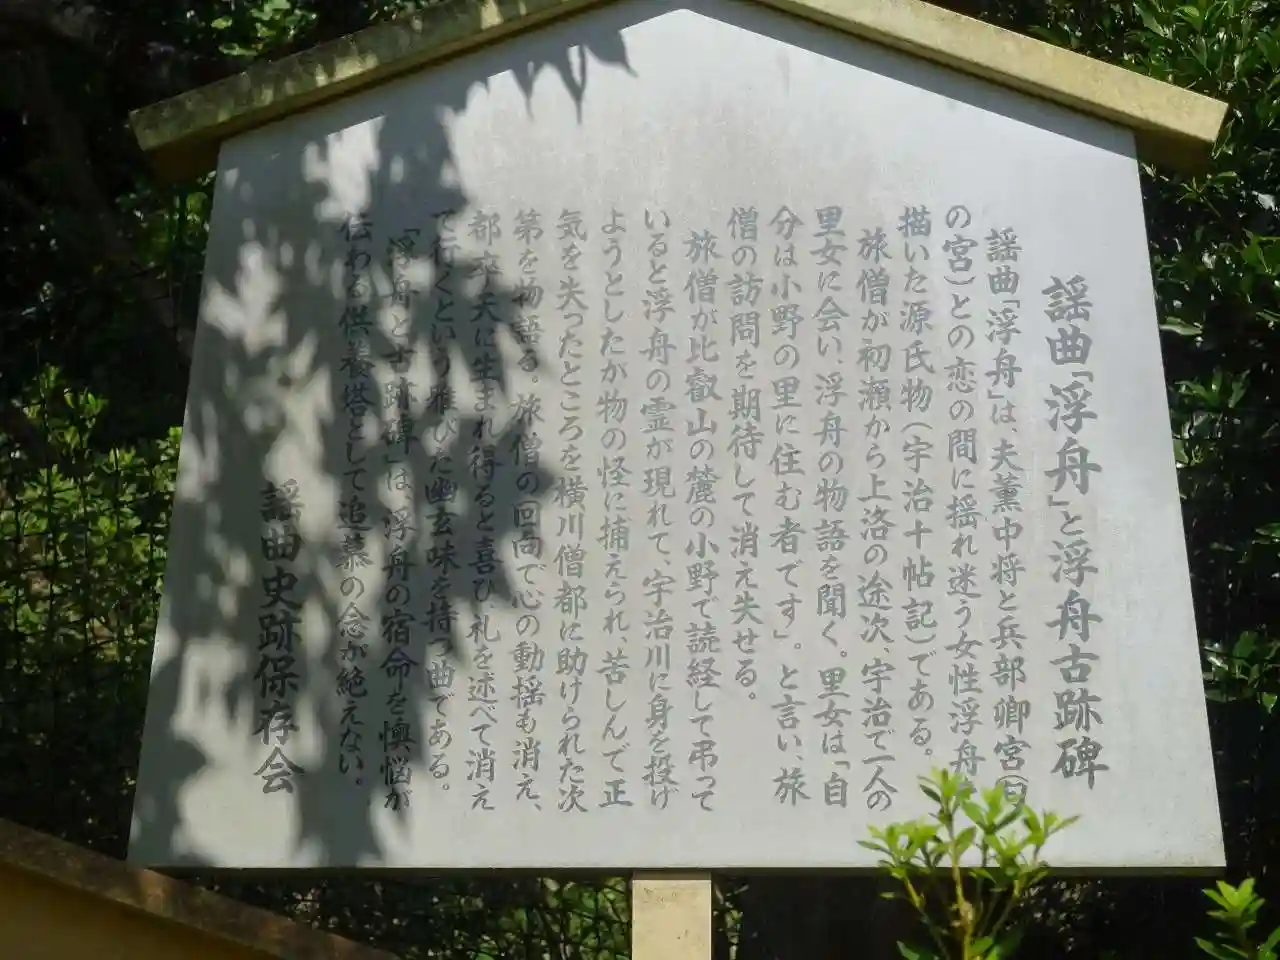 謡曲「浮舟」と浮舟古跡碑
謡曲「浮舟」は、夫薫中将と兵部卿宮(日
の宮)との恋の間に揺れ迷う女性浮舟
描いた源氏物(宇治十帖記)である。
旅僧が初瀬から上洛の途次、宇治で一人の
里女に会い、浮舟の物語を聞く。里女は「自
分は小野の里に住む者です」。と言い、旅
僧の訪問を期待して消え失せる。
旅僧が比叡山の麓の小野で読経して弔って
いると浮舟の霊が現れて、宇治川に身を投げ
ようとしたが物の怪に捕えられ、苦しんで正
気を失ったところを横川僧都に助けられた次
第を物語る。旅僧の回向で心の動揺も消え、
都卒天に生まれ得ると喜び、礼を述べて消え
て行くという雅びた幽玄味を持つ曲である。
「浮舟と古跡碑」は、浮舟の宿命を懊悩が
伝わる供養塔として追慕の念が絶えない。
謡曲史跡保存会